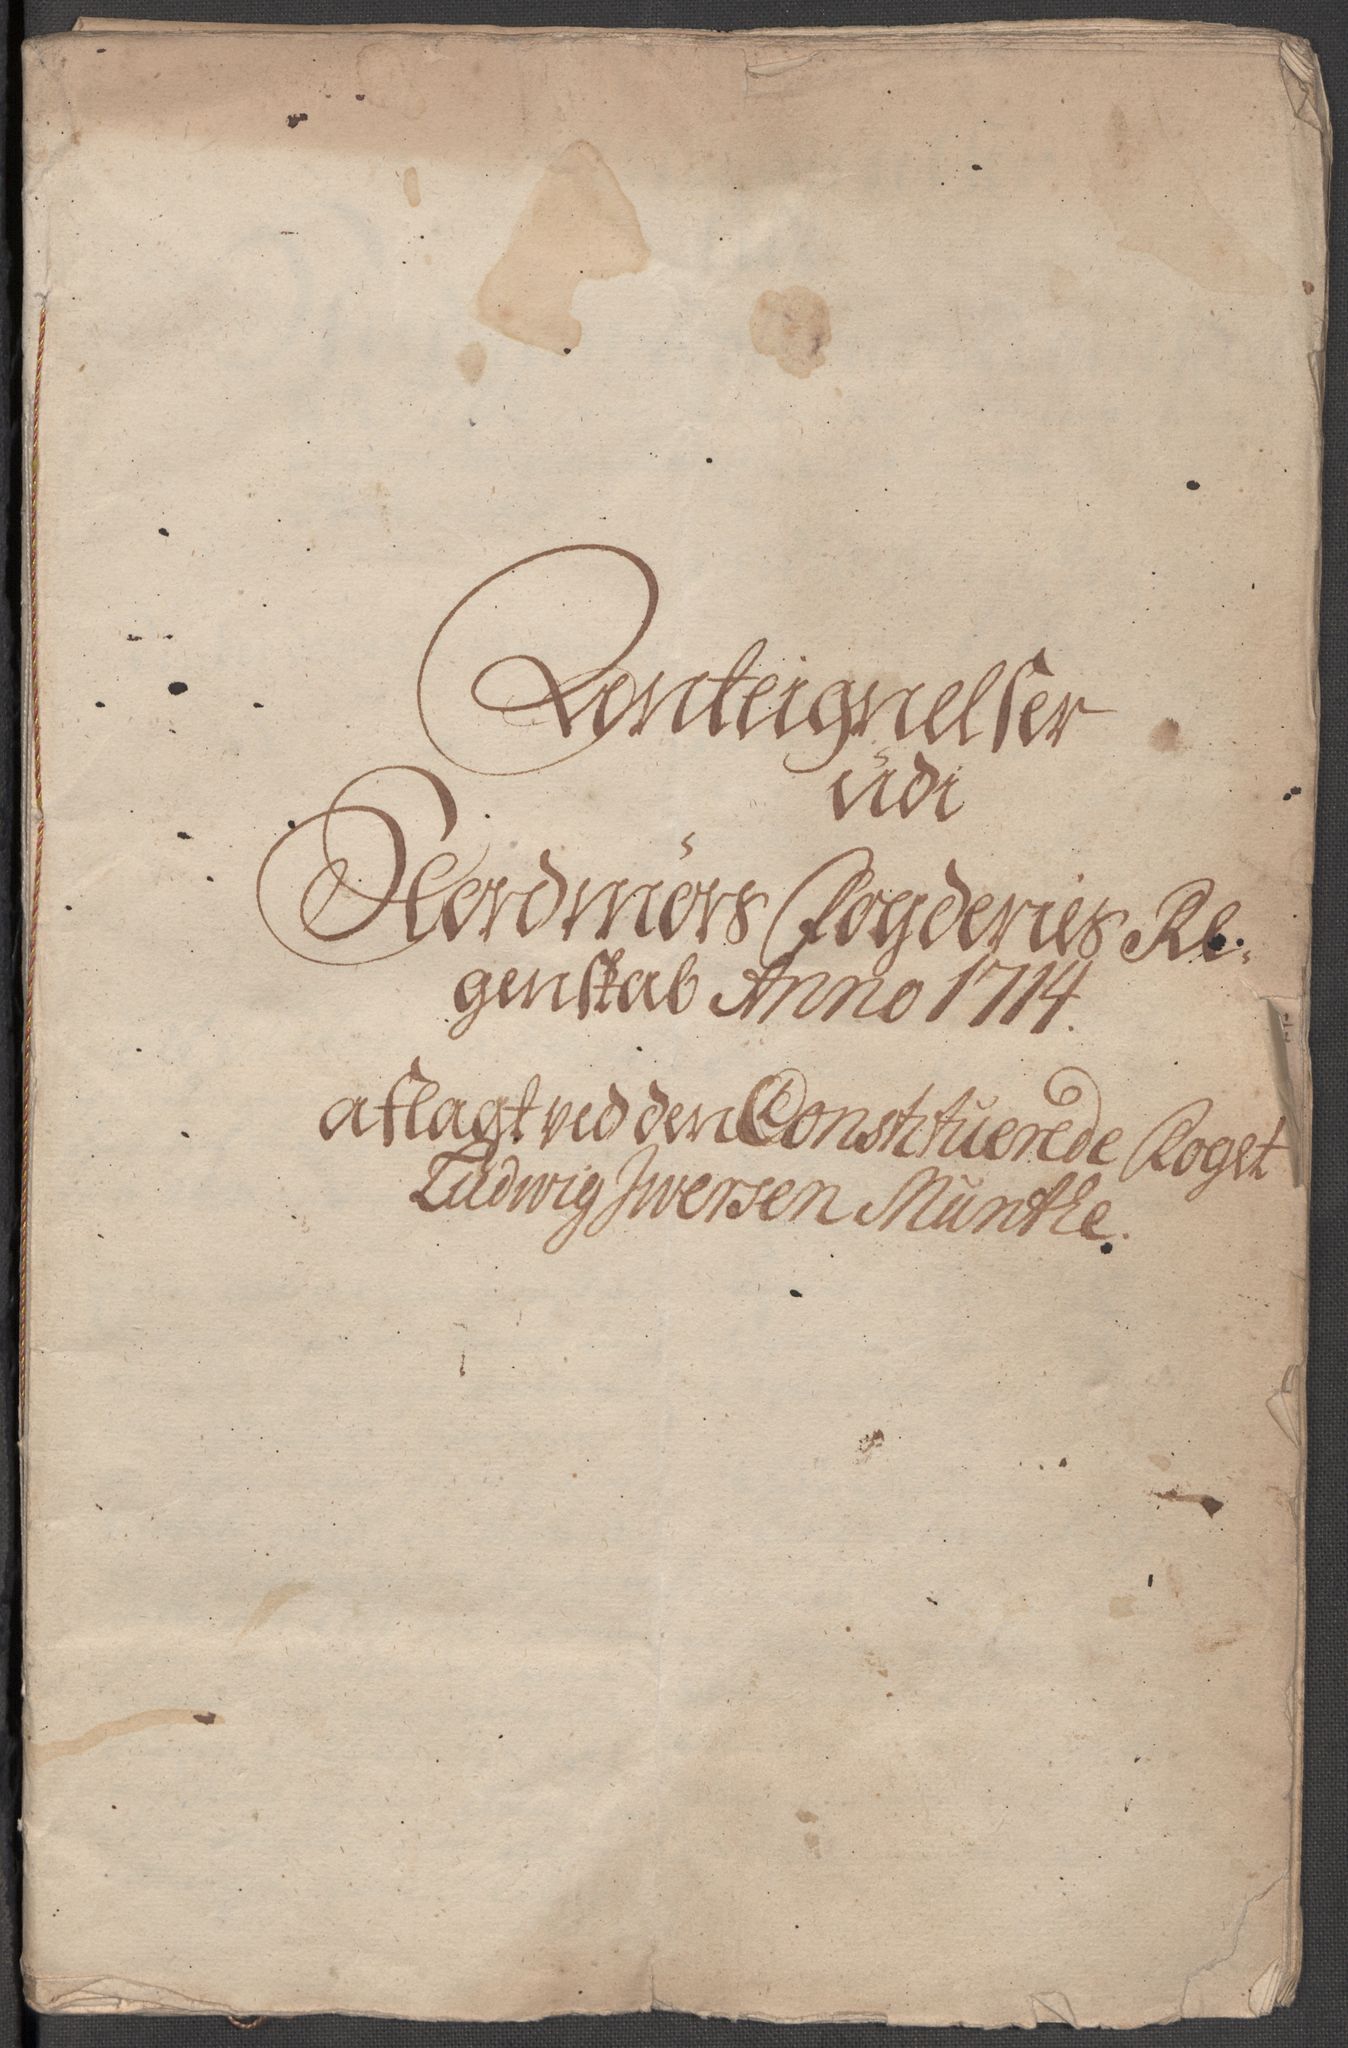 Anteignelser
udi
Nordmørs Fogderies Re-
genskab Anno 1714.
aflagt ved den Constituerede Foget
Ludwig Iwersen Munthe.